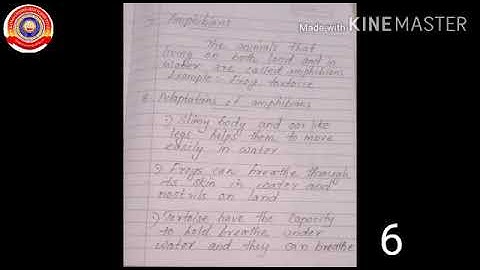 Made with KINEMASTER
Amphibians
The animals that
living on both land and in
water are called amphibians
Example - Frog tortoise
Adaptations of amphibians
Slimy body and oar like
legs helps them to move
easily in water
Frogs can breathe through
its skin in water and
nostrils on land
Tortoise have the capacity
to hold breathe under
water and they can breathe
6